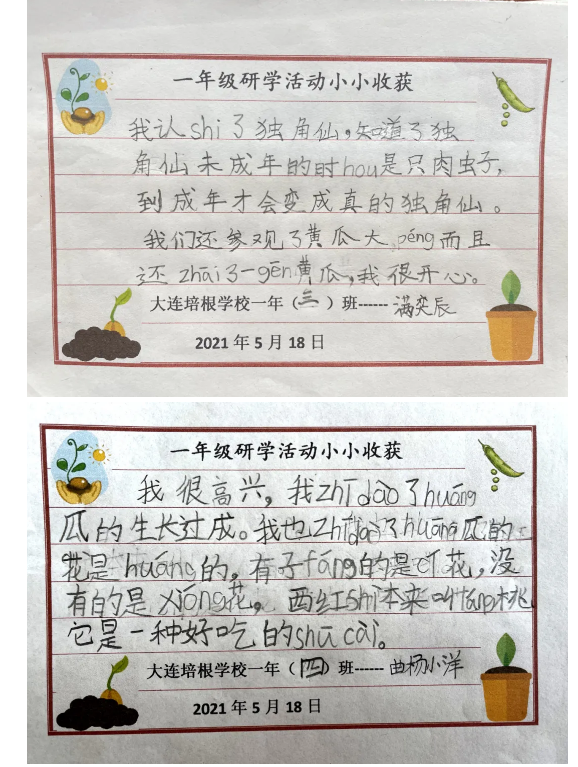 一年级研学活动小小收获
我认shi了独角仙。知道了独
角仙未成年的时hou是只肉虫子,
到成年才会变成真的独角仙。
我们还参观了黄瓜大péng而且
还zhāi了一gēn黄瓜,我很开心。
大连培根学校一年(三)班------满奕辰
2021年5月18日
一年级研学活动小小收获
我很高兴,我zhīdào了huáng
瓜的生长过成。我也zhīdào了huáng瓜的
花是huáng的,有子fáng的是cí花,没
有的是xióng花,西红shì本来叫fān桃
它是一种好吃的shū cài。
大连培根学校一年(四)班------曲杨小洋
2021年5月18日